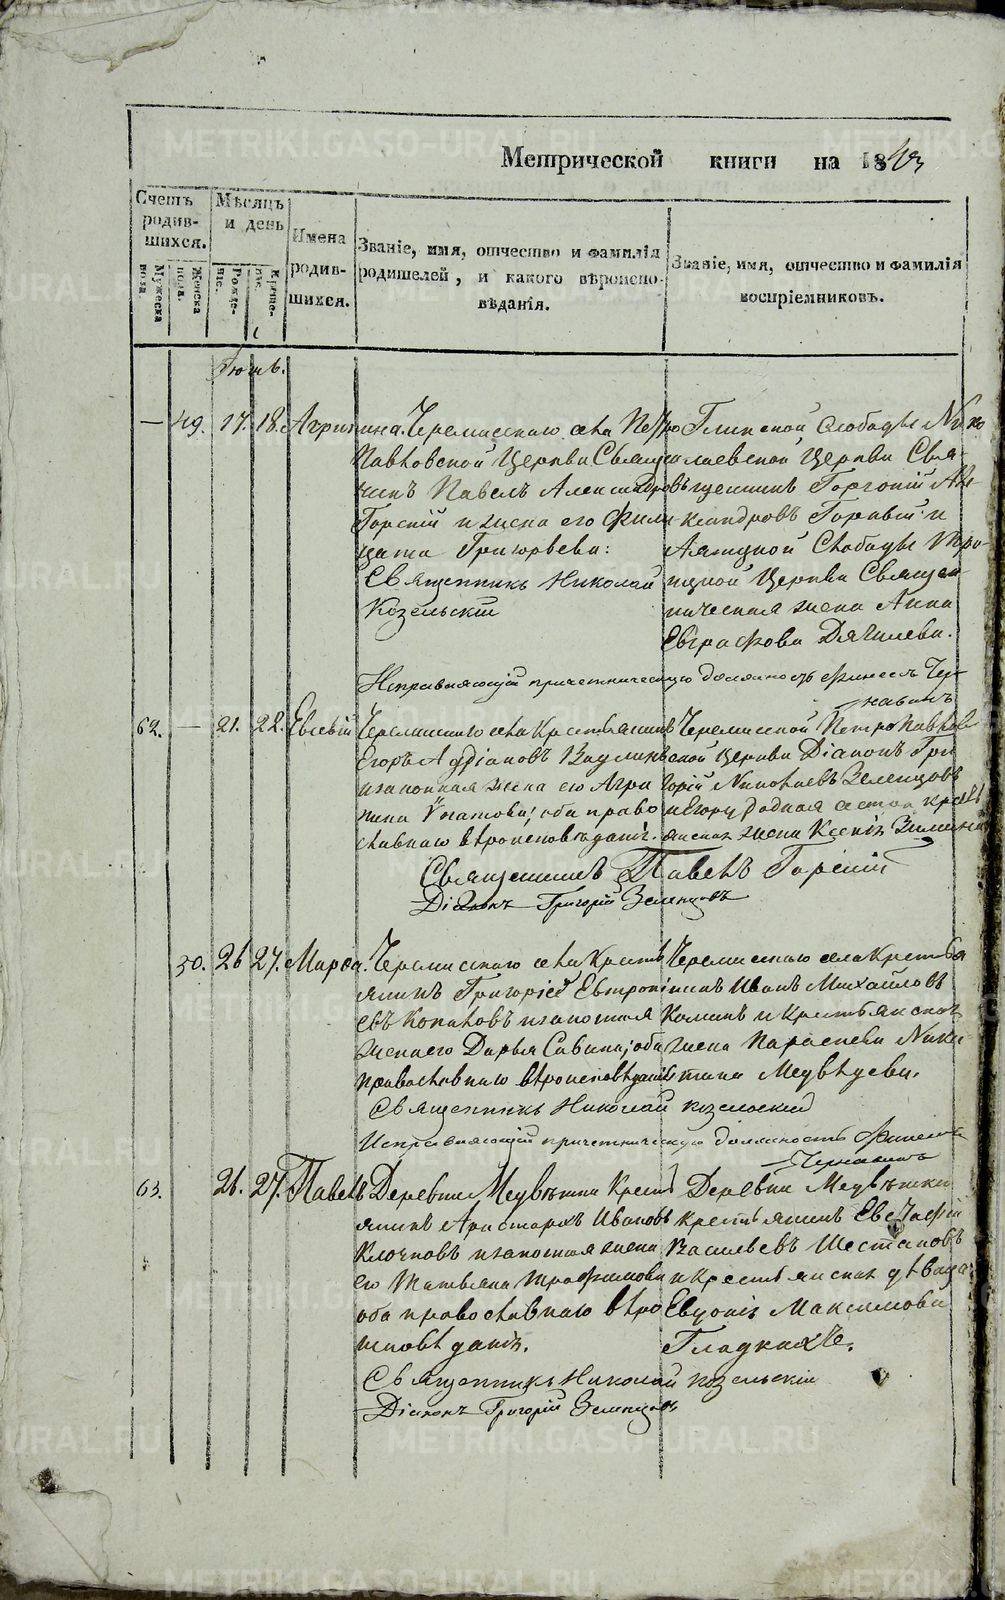 Метрической книги на 1843
Счетъ родившихся.
Мужеска пола.
Женска пола.
Мѣсяцъ и день
Рожденіе.
Крещеніе.
Имена родившихся.
Званіе, имя, отчество и фамилія
родителей, и какого вѣроиспо-
вѣданія.
Званіе, имя, отчество и фамилія
воспріемниковъ.
— 49. 17. 18. Агрипина.
Черемисскаго села Петро
Павловской Церкви Священ
никъ Павелъ Александровъ
Горскій и жена его Фили
цата Григорьева:
Священникъ Николай
Козельскій
Глинской Слободы Нико
лаевской Церкви Свя-
щенникъ Горгоній Але
ксандровъ Горскій и
Аятцкой Слободы Тро-
ицкой Церкви Священ
ническая жена Анна
Евграфова Дягилева.
Исправляющій причетническую должность Финеесъ Чер-
навинъ
62. — 21. 22. Евсевій
Черемисскаго села Крестьянинъ
Егоръ Андріановъ
и законная жена его Агри
пина Игнатова; оба право
славнаго вѣроисповѣданія.
Черемисской Петропавлов
ской Церкви Діаконъ Гри
горій Николаевъ Зеленцовъ
и Егору родная сестра крестъ
янская жена Ксенія Зимина
Священникъ Павелъ Горскій
Діаконъ Григорій Зеленцовъ
50. 26 27. Марѳа.
Черемисскаго села Кресть
янинъ Григорій Евтропі
евъ Копаловъ и законная
жена его Дарья Савина; оба
православнаго вѣроисповѣданія
Черемисскаго села Крестья
нинъ Иванъ Михайловъ
Коминъ и Крестьянская
жена Параскева Ники-
тина Медвѣдева.
Священникъ Николай Козельскій
Исправляющій причетническую должность Финеесъ
Чернавинъ
63. 26. 27. Павелъ
Деревни Медвѣшки Кресть
янинъ Аристархъ Ивановъ
Клочковъ и законная жена
его Татьяна Трофимова
оба православнаго вѣро
исповѣданія.
Деревни Медвѣшки
крестьянинъ Евстафій
Васильевъ Шестаковъ
и Крестьянская дѣвица
Евдокія Максимова
Гладкихъ.
Священникъ Николай Козельскій
Діаконъ Григорій Зеленцовъ
METRIKI.GASO-URAL.RU